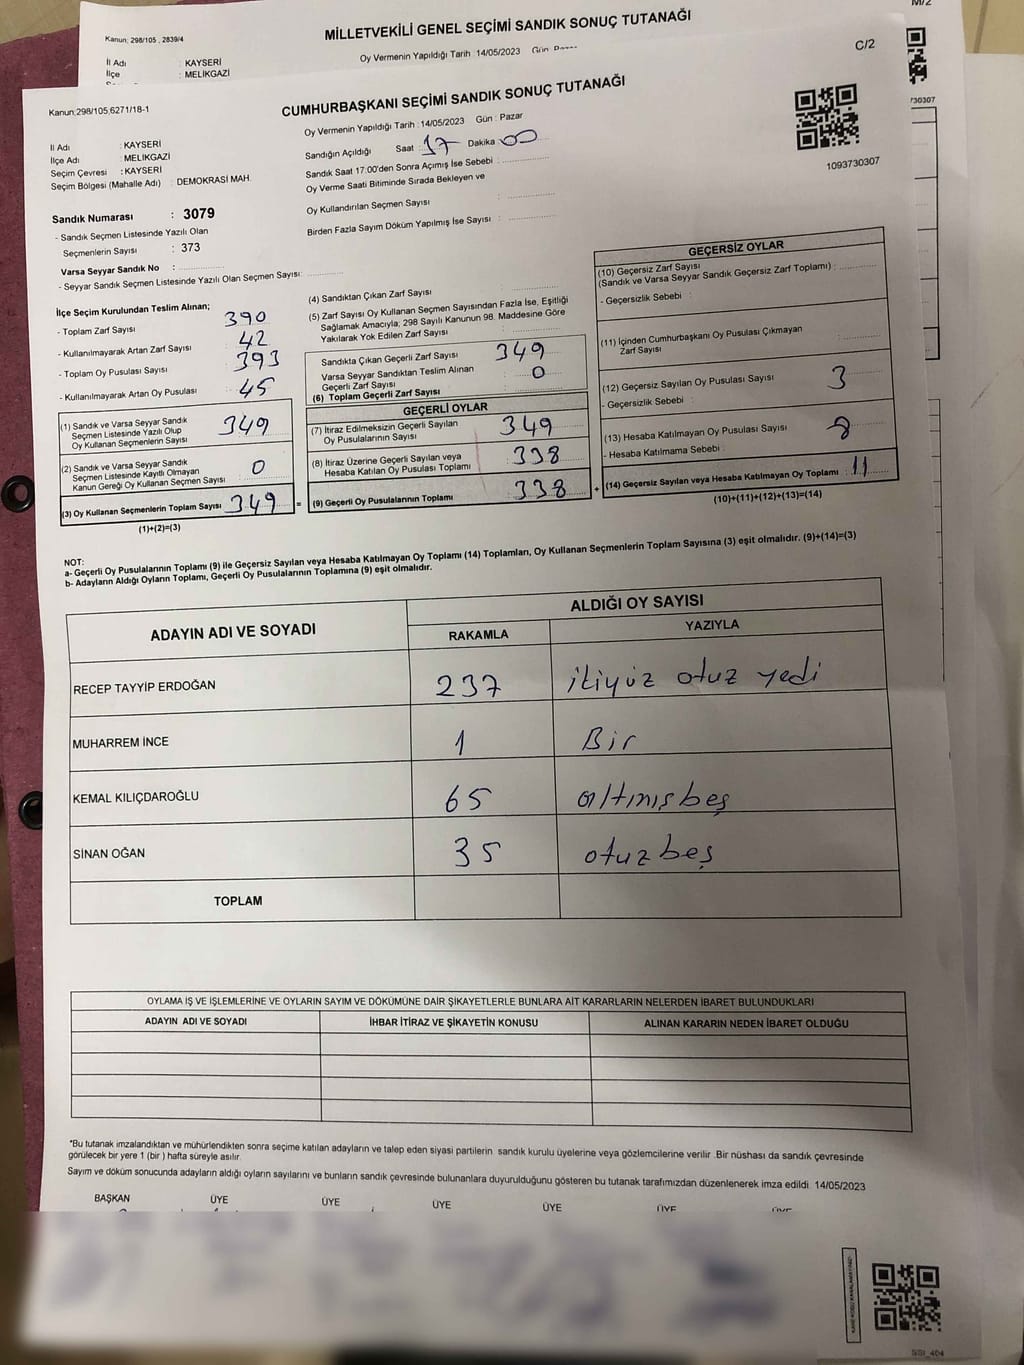 M/2
Kanun; 298/105 , 2839/4
MİLLETVEKİLİ GENEL SEÇİMİ SANDIK SONUÇ TUTANAĞI
Oy Vermenin Yapıldığı Tarih : 14/05/2023 Gün
İl Adı : KAYSERİ
İlçe : MELİKGAZİ
730307
C/2
Kanun;298/105;6271/18-1
CUMHURBAŞKANI SEÇİMİ SANDIK SONUÇ TUTANAĞI
Oy Vermenin Yapıldığı Tarih : 14/05/2023 Gün : Pazar
Sandığın Açıldığı Saat : 17 Dakika : 00
Sandık Saat 17:00'den Sonra Açımış İse Sebebi :
Oy Verme Saati Bitiminde Sırada Bekleyen ve
Oy Kullandırılan Seçmen Sayısı :
Birden Fazla Sayım Döküm Yapılmış İse Sayısı :
1093730307
İl Adı : KAYSERİ
İlçe Adı : MELİKGAZİ
Seçim Çevresi : KAYSERİ
Seçim Bölgesi (Mahalle Adı) : DEMOKRASİ MAH.
Sandık Numarası : 3079
- Sandık Seçmen Listesinde Yazılı Olan
Seçmenlerin Sayısı : 373
Varsa Seyyar Sandık No :
- Seyyar Sandık Seçmen Listesinde Yazılı Olan Seçmen Sayısı:
İlçe Seçim Kurulundan Teslim Alınan;
- Toplam Zarf Sayısı : 390
- Kullanılmayarak Artan Zarf Sayısı : 42
- Toplam Oy Pusulası Sayısı : 393
- Kullanılmayarak Artan Oy Pusulası : 45
(1) Sandık ve Varsa Seyyar Sandık
Seçmen Listesinde Yazılı Olup
Oy Kullanan Seçmenlerin Sayısı : 349
(2) Sandık ve Varsa Seyyar Sandık
Seçmen Listesinde Kayıtlı Olmayan
Kanun Gereği Oy Kullanan Seçmen Sayısı : 0
(3) Oy Kullanan Seçmenlerin Toplam Sayısı : 349
(1)+(2)=(3)
=
(4) Sandıktan Çıkan Zarf Sayısı :
(5) Zarf Sayısı Oy Kullanan Seçmen Sayısından Fazla İse, Eşitliği
Sağlamak Amacıyla; 298 Sayılı Kanunun 98. Maddesine Göre
Yakılarak Yok Edilen Zarf Sayısı :
Sandıkta Çıkan Geçerli Zarf Sayısı : 349
Varsa Seyyar Sandıktan Teslim Alınan
Geçerli Zarf Sayısı : 0
(6) Toplam Geçerli Zarf Sayısı :
GEÇERLİ OYLAR
(7) İtiraz Edilmeksizin Geçerli Sayılan
Oy Pusulalarının Sayısı : 349
(8) İtiraz Üzerine Geçerli Sayılan veya
Hesaba Katılan Oy Pusulası Toplamı : 338
(9) Geçerli Oy Pusulalarının Toplamı : 338
+
GEÇERSİZ OYLAR
(10) Geçersiz Zarf Sayısı
(Sandık ve Varsa Seyyar Sandık Geçersiz Zarf Toplamı) :
- Geçersizlik Sebebi :
(11) İçinden Cumhurbaşkanı Oy Pusulası Çıkmayan
Zarf Sayısı :
(12) Geçersiz Sayılan Oy Pusulası Sayısı : 3
- Geçersizlik Sebebi :
(13) Hesaba Katılmayan Oy Pusulası Sayısı : 8
- Hesaba Katılmama Sebebi :
(14) Geçersiz Sayılan veya Hesaba Katılmayan Oy Toplamı : 11
(10)+(11)+(12)+(13)=(14)
NOT:
a- Geçerli Oy Pusulalarının Toplamı (9) ile Geçersiz Sayılan veya Hesaba Katılmayan Oy Toplamı (14) Toplamları, Oy Kullanan Seçmenlerin Toplam Sayısına (3) eşit olmalıdır. (9)+(14)=(3)
b- Adayların Aldığı Oyların Toplamı, Geçerli Oy Pusulalarının Toplamına (9) eşit olmalıdır.
ADAYIN ADI VE SOYADI
ALDIĞI OY SAYISI
RAKAMLA YAZIYLA
RECEP TAYYİP ERDOĞAN 237 ikiyüz otuz yedi
MUHARREM İNCE 1 Bir
KEMAL KILIÇDAROĞLU 65 altmışbeş
SİNAN OĞAN 35 otuzbeş
TOPLAM
OYLAMA İŞ VE İŞLEMLERİNE VE OYLARIN SAYIM VE DÖKÜMÜNE DAİR ŞİKAYETLERLE BUNLARA AİT KARARLARIN NELERDEN İBARET BULUNDUKLARI
ADAYIN ADI VE SOYADI İHBAR İTİRAZ VE ŞİKAYETİN KONUSU ALINAN KARARIN NEDEN İBARET OLDUĞU
*Bu tutanak imzalandıktan ve mühürlendikten sonra seçime katılan adayların ve talep eden siyasi partilerin sandık kurulu üyelerine veya gözlemcilerine verilir .Bir nüshası da sandık çevresinde
görülecek bir yere 1 (bir ) hafta süreyle asılır.
Sayım ve döküm sonucunda adayların aldığı oyların sayılarını ve bunların sandık çevresinde bulunanlara duyurulduğunu gösteren bu tutanak tarafımızdan düzenlenerek imza edildi 14/05/2023
BAŞKAN ÜYE ÜYE ÜYE ÜYE ÜYE ÜYE
SSI_404